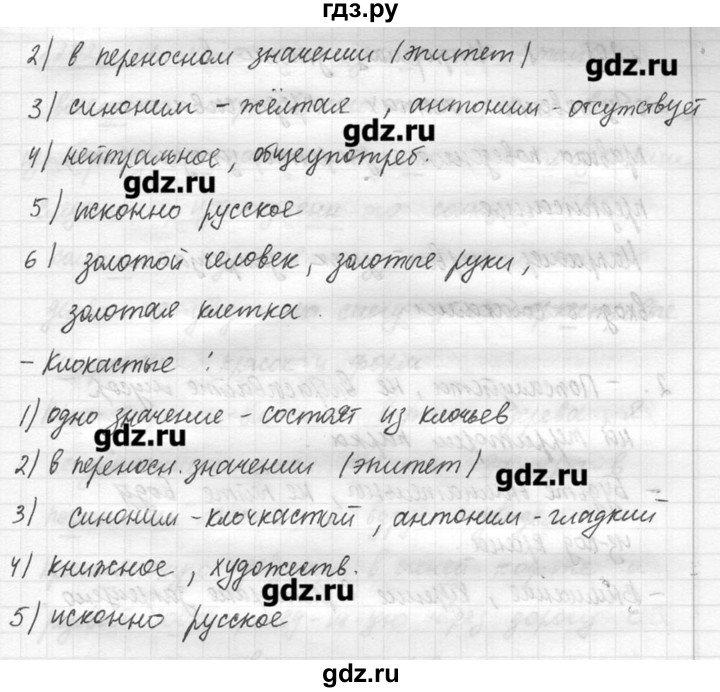 гдз.ру
2) в переносном значении (эпитет)
gdz.ru
3) синоним - жёлтая, антоним - отсутствует
gdz.ru
4) нейтральное, общеупотреб.
gdz.ru
5) исконно русское
6) золотой человек, золотые руки,
золотая клетка.
- Клокастые :
1) одно значение - состоят из клочьев
gdz.ru
2) в переносн. значении (эпитет)
gdz.ru
3) синоним - клочкастый, антоним - гладкий
4) книжное, художеств.
gdz.ru
5) исконно русское
gdz.ru